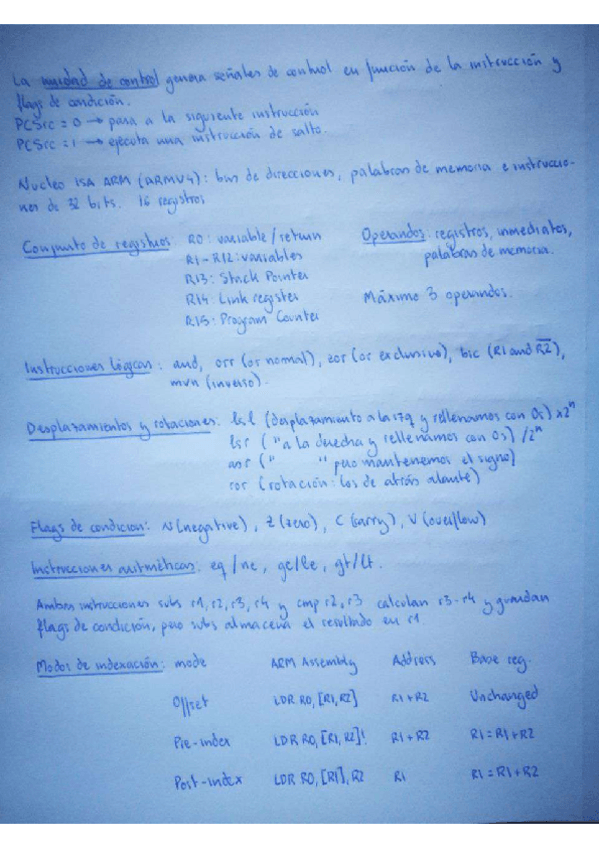 La unidad de control genera señales de control en función de la instrucción y
flags de condición.
PCSrc = 0 → pasa a la siguiente instrucción
PCSrc = 1 → ejecuta una instrucción de salto.
Nucleo ISA ARM (ARMV4): bus de direcciones, palabras de memoria e instruccio-
nes de 32 bits. 16 registros
Conjunto de registros R0: variable / return
R1-R12: variables
R13: Stack Pointer
R14: Link register
R15: Program Counter
Operandos: registros, inmediatos,
palabras de memoria.
Máximo 3 operandos.
Instrucciones lógicas: and, orr (or normal), eor (or exclusivo), bic (R1 and R̅2̅),
mvn (inverso).
Desplazamientos y rotaciones: lsl (desplazamiento a la izq y rellenamos con 0s) x2ⁿ
lsr ( " a la derecha y rellenamos con 0s) /2ⁿ
asr ( " " pero mantenemos el signo)
ror (rotación: los de atrás alante)
Flags de condicion: N (negative), Z (zero), C (carry), V (overflow)
Instrucciones aritméticas: eq / ne, ge/le, gt/lt.
Ambas instrucciones subs r1, r2, r3, r4 y cmp r2, r3 calculan r3-r4 y guardan
flags de condición, pero subs almacena el resultado en r1.
Modos de indexación: mode ARM Assembly Address Base reg.
Offset LDR R0, [R1, R2] R1 + R2 Unchanged
Pre-index LDR R0, [R1, R2]! R1 + R2 R1 = R1 + R2
Post-index LDR R0, [R1], R2 R1 R1 = R1 + R2